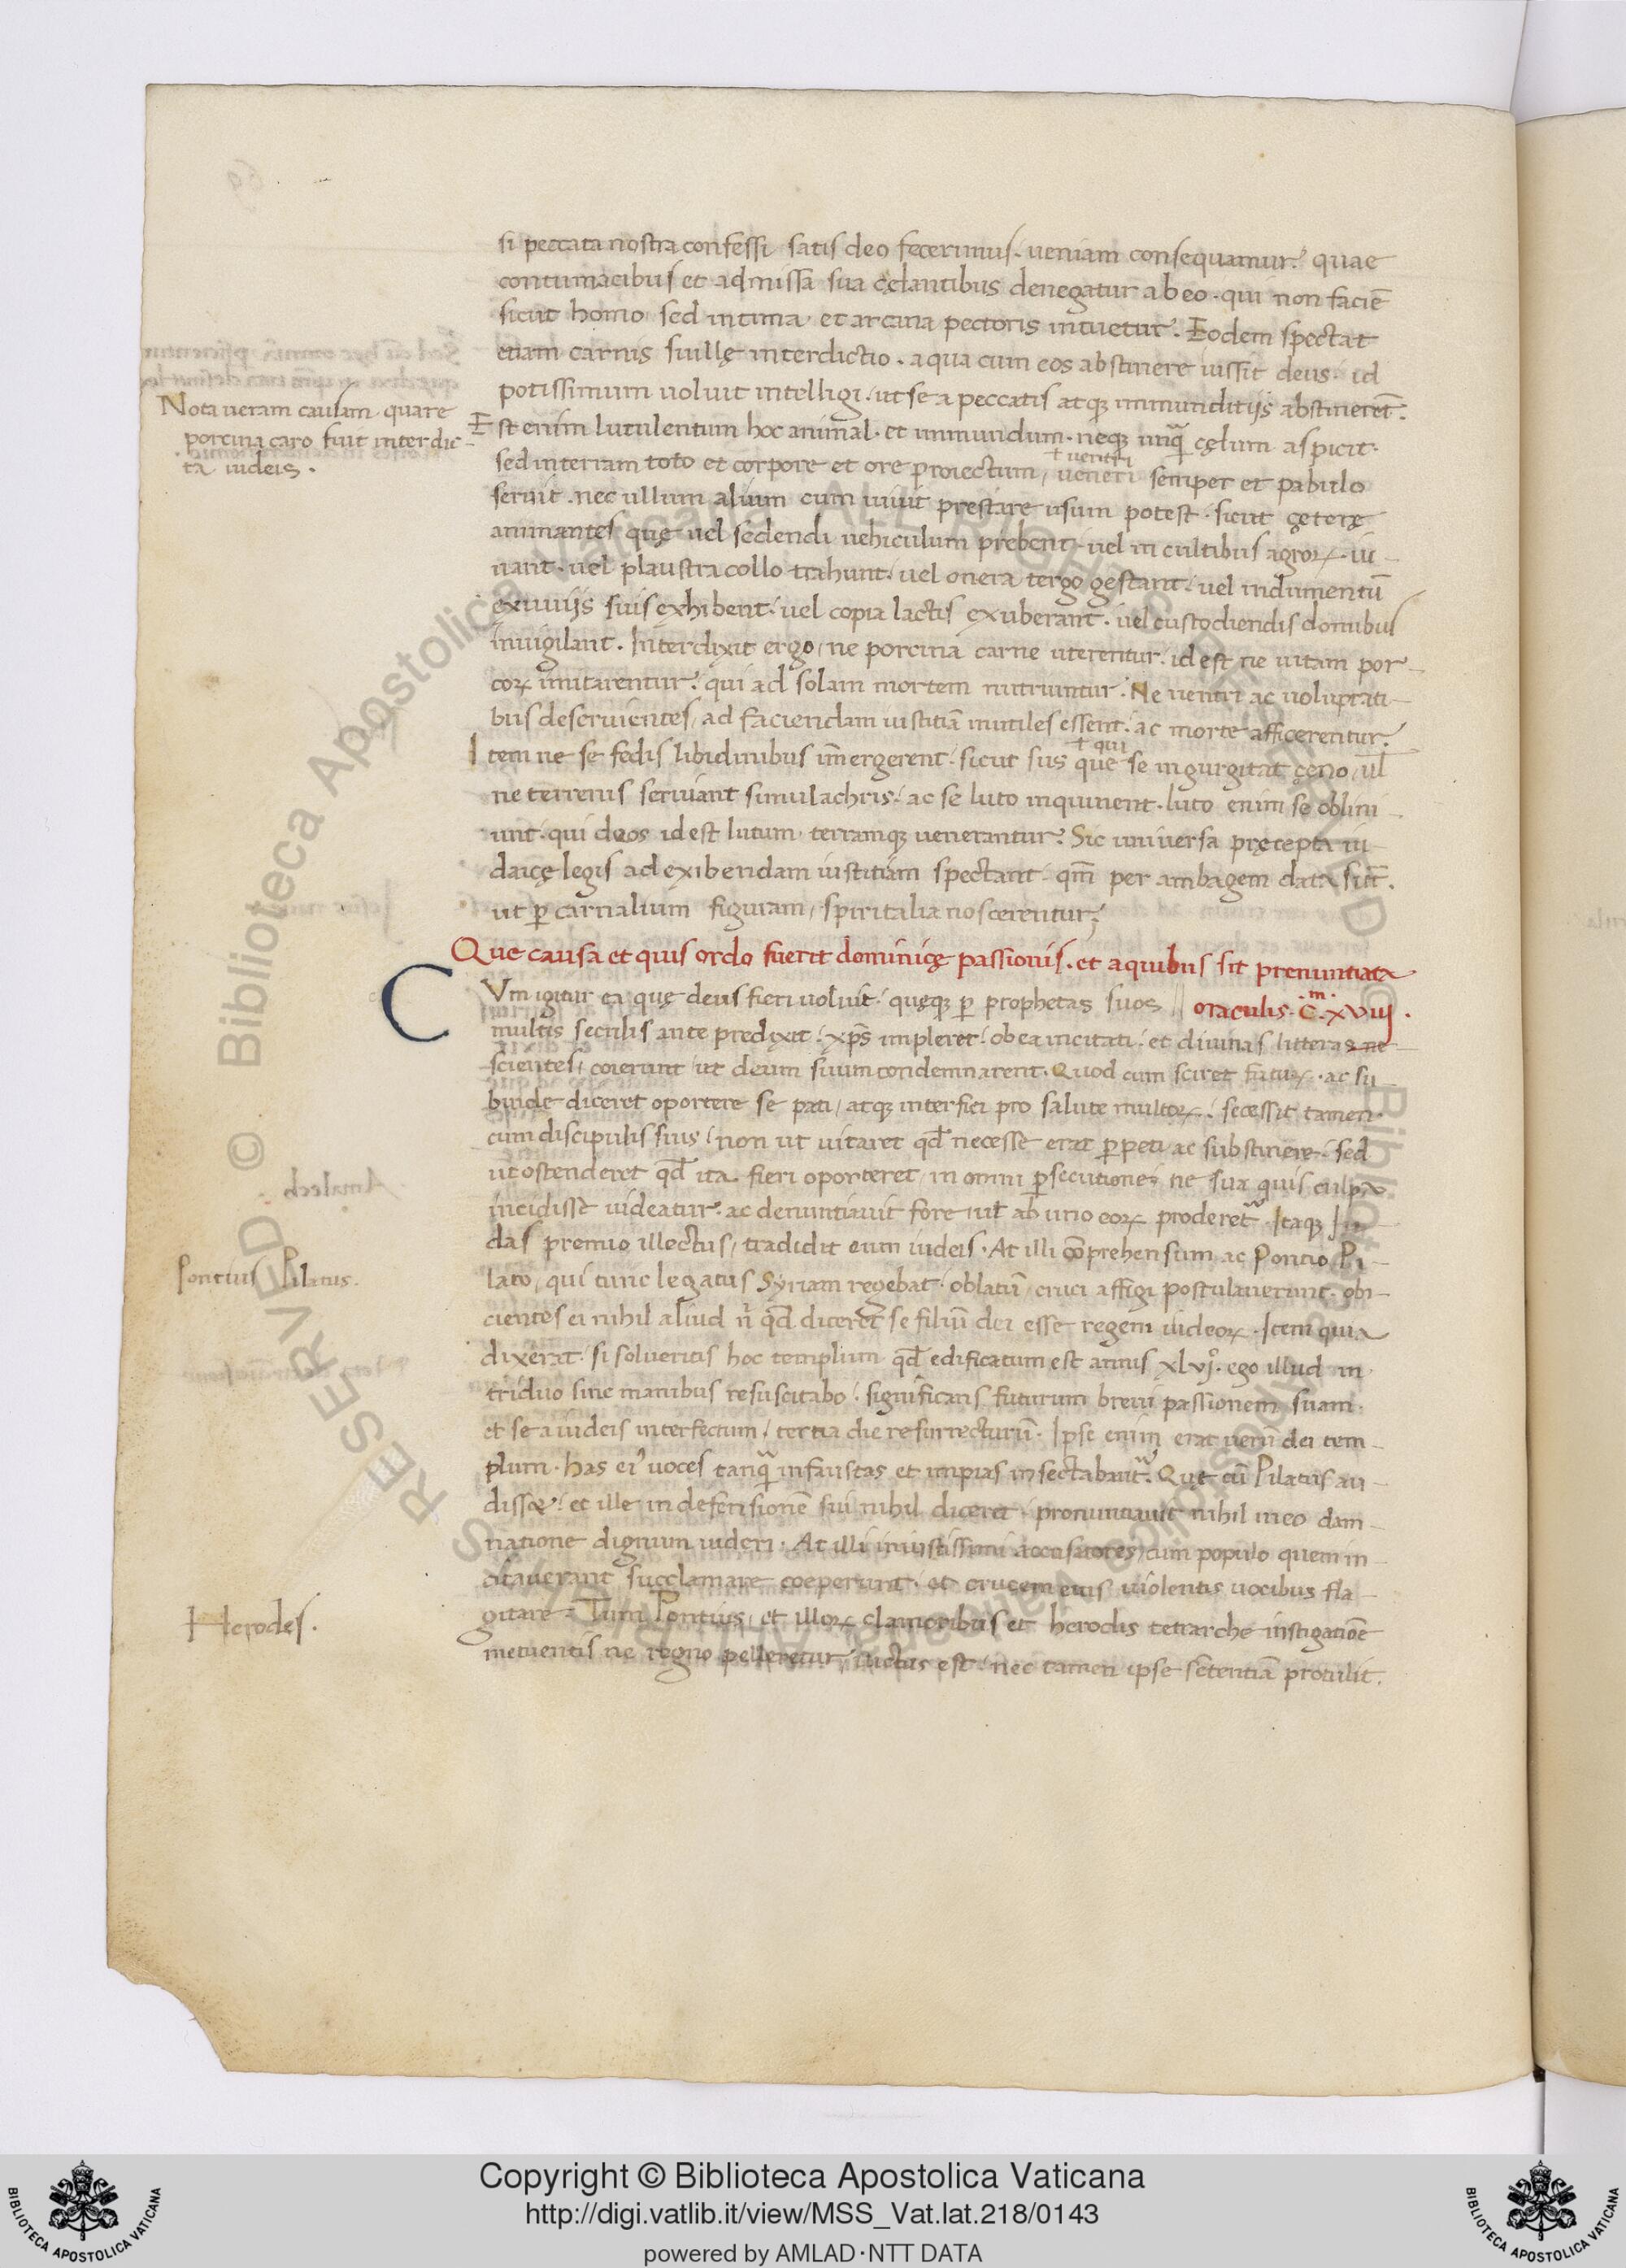 si peccata nostra confessi satis deo fecerimus. ueniam consequamur. quae
contumacibus et admissa sua cęlantibus denegatur ab eo. qui non faciē
sicut homo sed intima et arcana pectoris intuetur. Eodem spectat
etiam carnis suillę interdictio. a qua cum eos abstinere iussit deus. id
potissimum uoluit intelligi. ut se a peccatis atqꝫ immunditijs abstinerēt.
Nota ueram causam quare
porcina caro fuit interdic-
ta iudeis.
Est enim lutulentum hoc animal. et immundum. neqꝫ unꝗ̃ cęlum aspicit.
+ uentri
sed in terram toto et corpore et ore proiectum, ueneri semper et pabulo
seruit. nec ullum alium cum uiuit prestare usum potest. sicut cęterę
animantes quę uel sedendi uehiculum prebent. uel in cultibus agroꝝ. iu-
uant. uel plaustra collo trahunt. uel onera tergo gestant. uel indumentū
exuuijs suis exhibent. uel copia lactis exuberant. uel custodiendis domibus
inuigilant. Interdixit ergo, ne porcina carne uterentur. id est ne uitam por-
coꝝ imitarentur. qui ad solam mortem nutriuntur. Ne uentri ac uoluptati-
bus deseruientes, ad faciendam iustitiā inutiles essent. ac morte afficerentur.
+ qui
Item ne se fedis libidinibus īmergerent. sicut sus que se ingurgitat cęno, ul̄
ne terrenis seruiant simulachris. ac se luto inquinent. luto enim se oblini-
unt. qui deos id est lutum terramqꝫ uenerantur. Sic uniuersa pręcepta iu-
daicę legis ad exibendam iustitiam spectant. qm̄ per ambagem data sūt.
ut ꝑ carnalium figuram, spiritalia noscerentur.
Que causa et quis ordo fuerit dominicę passionis. et a quibus sit prenuntiata
oraculis. C.ᵐ xviij.
CVm igitur ea quę deus fieri uoluit. quęqꝫ ꝑ prophetas suos
multis seculis ante predixit. xp̄s impleret. ob ea incitati. et diuinas litteras ne-
scientes, coierunt ut deum suum condemnarent. Quod cum sciret futuꝝ. ac su-
binde diceret oportere se pati, atqꝫ interfici pro salute multoꝝ. secessit tamen
cum discipulis suis, non ut uitaret qd̄ necesse erat ꝑpeti ac substinere. sed
ut ostenderet qd̄ ita fieri oporteret, in omni ꝑsecutione, ne sua quis culpa
incidisse uideatur. ac denuntiauit fore ut ab uno eoꝝ proderet᷑. Itaqꝫ Iu-
das premio illectus, tradidit eum iudeis. At illi cōprehensum ac Pontio Pi-
Pontius Pilatus.
lato, qui tunc legatus Syriam regebat. oblatū, cruci affigi postulauerunt. obi-
cientes ei nihil aliud n̄ qd̄ diceret se filiū dei esse regem iudeoꝝ. Item quia
dixerat. si solueritis hoc templum qd̄ edificatum est annis xlvjº. ego illud in
triduo sine manibus resuscitabo. significans futurum breui passionem suam.
et se a iudeis interfectum, tertia die resurrecturū. Ipse enim erat uerū dei tem-
plum. has eiꝰ uoces tanꝗ̃ infaustas et impias insectabant᷑. Quę cū Pilatus au-
disset. et ille in defensionē sui nihil diceret. pronuntiauit nihil in eo dam-
natione dignum uideri. At illi iniustissimi accusatores, cum populo quem in-
citauerant succlamare coeperunt. et crucem eius uiolentis uocibus fla-
gitare. Tum Pontius, et illoꝝ clamoribus et herodis tetrarche instigatiōe
Herodes.
metuentis ne regno pelleretur, uictus est. nec tamen ipse sētentiā protulit.
Copyright © Biblioteca Apostolica Vaticana
http://digi.vatlib.it/view/MSS_Vat.lat.218/0143
powered by AMLAD·NTT DATA
BIBLIOTECA APOSTOLICA VATICANA
BIBLIOTECA APOSTOLICA VATICANA